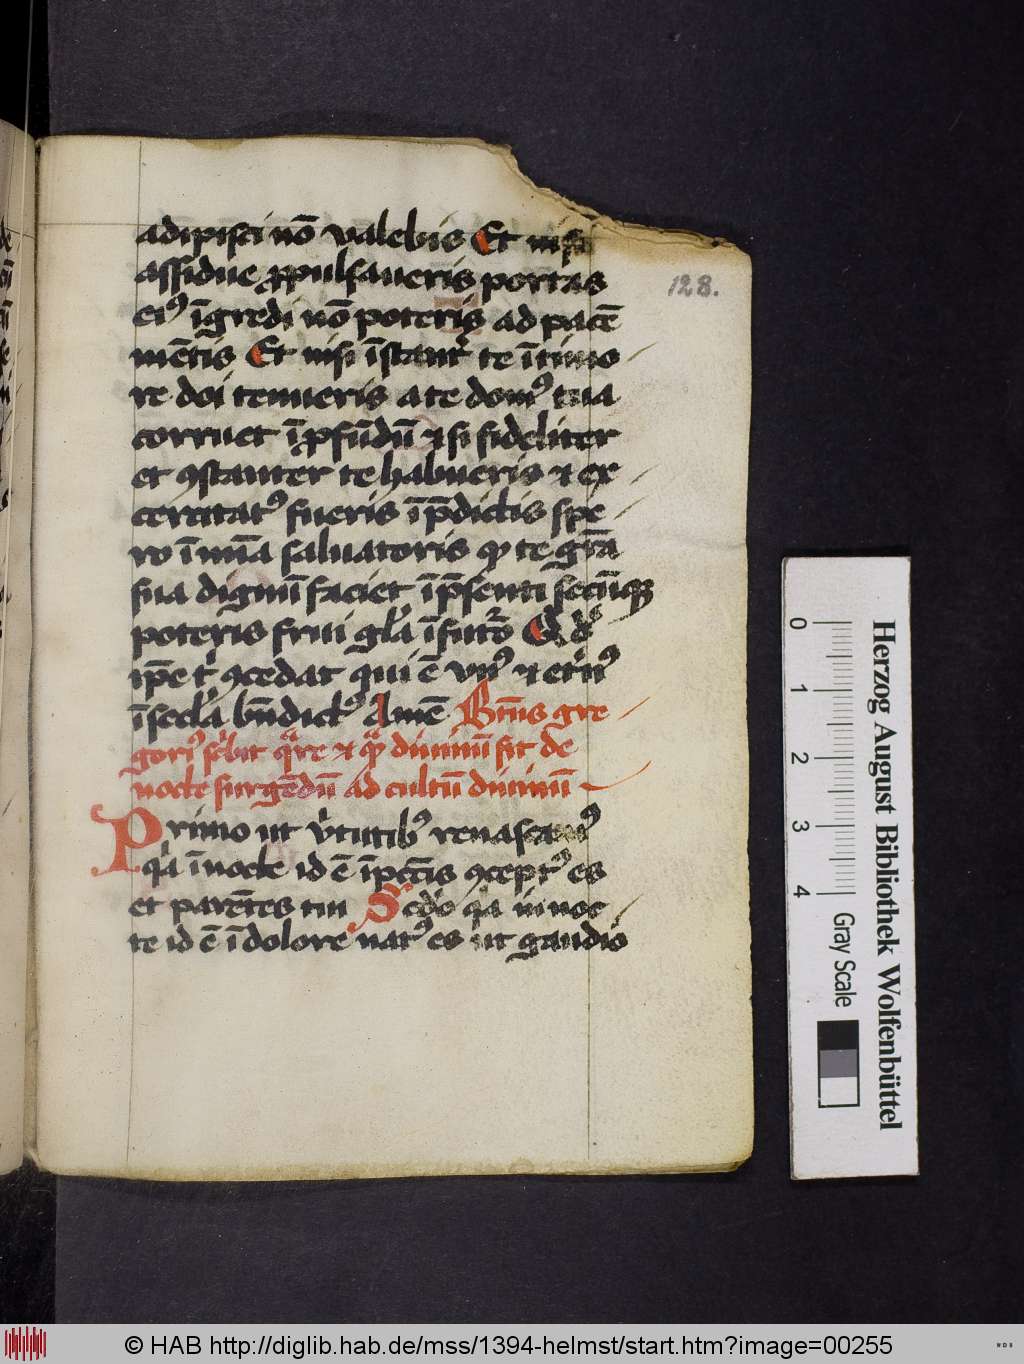 adipisci nō valebis Et nisi
assidue ꝓpulsaueris portas
eiꝰ īgredi nō poteris ad pacē
mētis Et nisi īstantʳ te ī timo
re doī tenueris a te domꝰ tua
corruet ī ꝓfūdū ⁊ si fideliter
et ꝯstanter te habueris ⁊ ex
ercitatꝰ fueris ī p̄dictis spe
ro ī mīa saluatoris ꝙ te gr̄a
sua dignū faciet ī p̄senti secūqꝫ
poteris frui gl̓a ī futō Qd
ip̄e t̓ ꝯcedat qui ē vnꝰ ⁊ et̓nꝰ
ī secl̓a bn̄dictꝰ Amē Btūs gre
goriꝰ sc̓bit qͣre ⁊ ꝙ diuinū sit de
nocte surgēdū ad cultū diuinū
Primo ut v̓tutibꝰ renascamꝰ
qͥa ī nocte id ē ī pctīs ꝯceptꝰ es
et parētes tui Scd̓o qͥa in noc
te id ē ī dolore natꝰ es ut gaudio
128.
0 1 2 3 4
Gray Scale
Herzog August Bibliothek Wolfenbüttel
© HAB http://diglib.hab.de/mss/1394-helmst/start.htm?image=00255